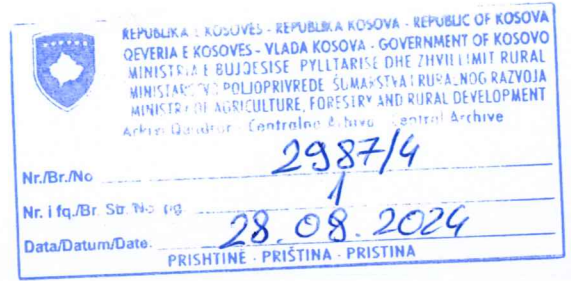 REPUBLIKA E KOSOVËS - REPUBLIKA KOSOVA - REPUBLIC OF KOSOVA
QEVERIA E KOSOVËS - VLADA KOSOVA - GOVERNMENT OF KOSOVO
MINISTRIA E BUJQËSISË PYLLTARISË DHE ZHVILLIMIT RURAL
MINISTARSTVO POLJOPRIVREDE ŠUMARSTVA I RURALNOG RAZVOJA
MINISTRY OF AGRICULTURE, FORESTRY AND RURAL DEVELOPMENT
Arkivi Qendror - Centralna Arhiva - Central Archive
Nr./Br./No 2987/4
Nr. i fq./Br. Str./No. pg. 1
Data/Datum/Date. 28.08.2024
PRISHTINË - PRIŠTINA - PRISTINA